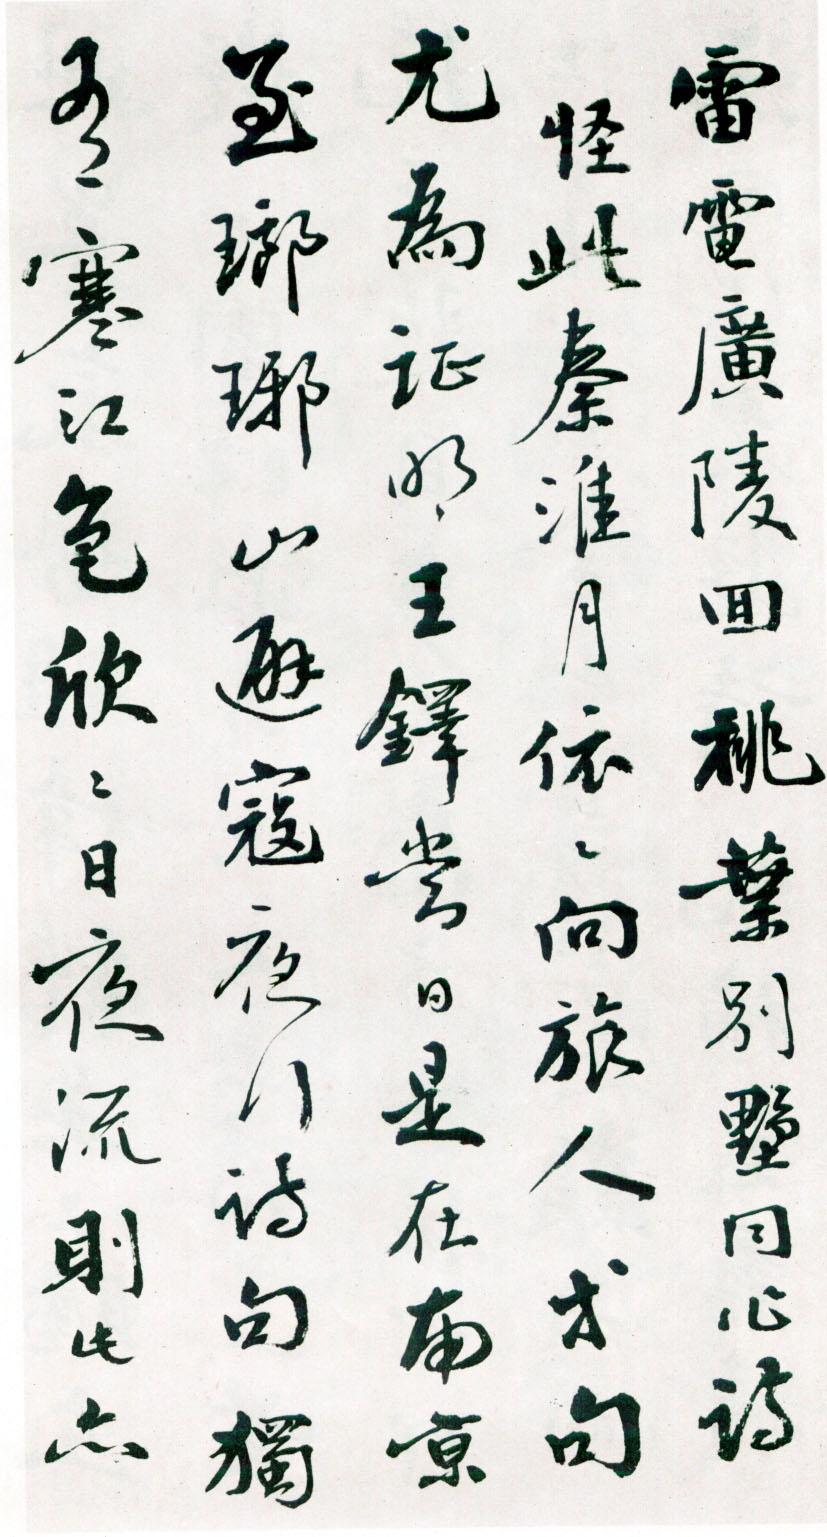 雷電廣陵回桃葉別墅同作詩
怪此秦淮月依〻向旅人才句
尤為証明王鐸當日是在南京
至瑯琊山避寇夜行詩句獨
有寒江色欣〻日夜流則此亦